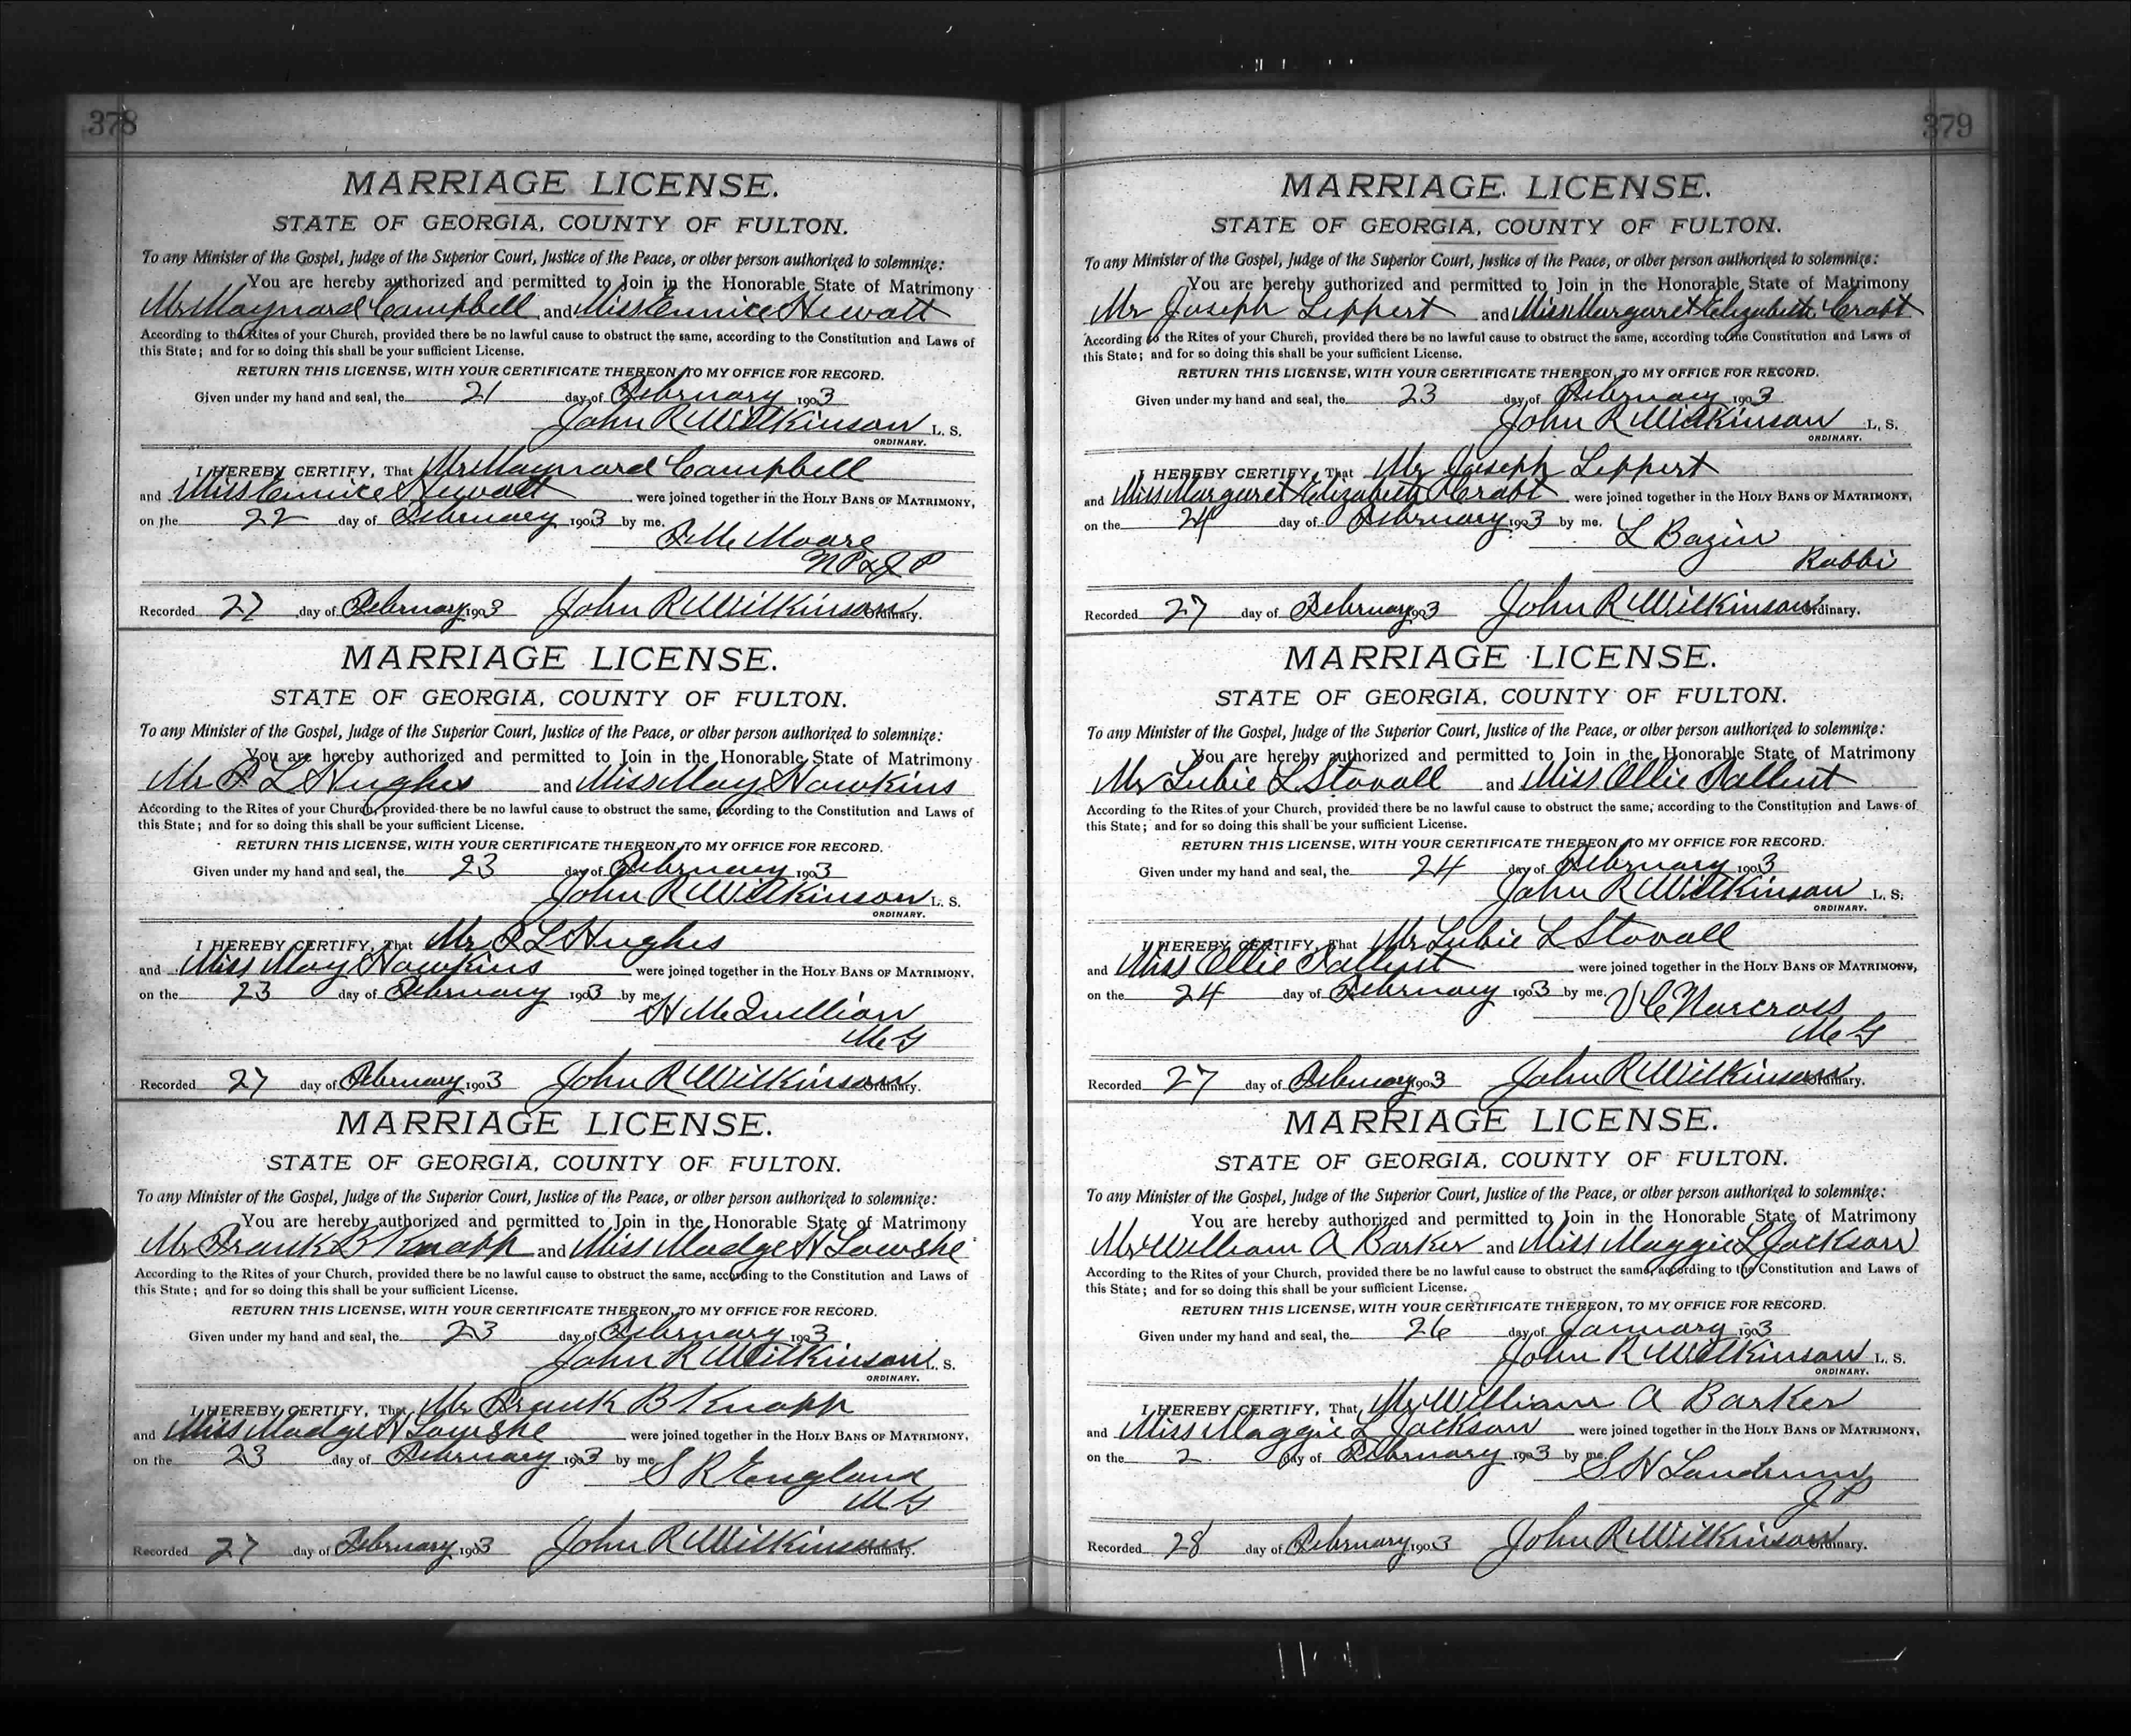 378
MARRIAGE LICENSE.
STATE OF GEORGIA, COUNTY OF FULTON.
To any Minister of the Gospel, Judge of the Superior Court, Justice of the Peace, or other person authorized to solemnize:
You are hereby authorized and permitted to Join in the Honorable State of Matrimony
Mr Maynard Campbell and Miss Eunice Hewatt
According to the Rites of your Church, provided there be no lawful cause to obstruct the same, according to the Constitution and Laws of
this State; and for so doing this shall be your sufficient License.
RETURN THIS LICENSE, WITH YOUR CERTIFICATE THEREON, TO MY OFFICE FOR RECORD.
Given under my hand and seal, the 21 day of February 1903
John R Wilkinson L. S.
ORDINARY.
I HEREBY CERTIFY, That Mr Maynard Campbell
and Miss Eunice Hewatt were joined together in the HOLY BANS OF MATRIMONY,
on the 22 day of February 1903 by me.
Moore
NP & JP
Recorded 27 day of February 1903 John R Wilkinson Ordinary.
MARRIAGE LICENSE.
STATE OF GEORGIA, COUNTY OF FULTON.
To any Minister of the Gospel, Judge of the Superior Court, Justice of the Peace, or other person authorized to solemnize:
You are hereby authorized and permitted to Join in the Honorable State of Matrimony
Mr P L Hughes and Miss May Hawkins
According to the Rites of your Church, provided there be no lawful cause to obstruct the same, according to the Constitution and Laws of
this State; and for so doing this shall be your sufficient License.
RETURN THIS LICENSE, WITH YOUR CERTIFICATE THEREON, TO MY OFFICE FOR RECORD.
Given under my hand and seal, the 23 day of February 1903
John R Wilkinson L. S.
ORDINARY.
I HEREBY CERTIFY, That Mr P L Hughes
and Miss May Hawkins were joined together in the HOLY BANS OF MATRIMONY,
on the 23 day of February 1903 by me
H M Quillian
M G
Recorded 27 day of February 1903 John R Wilkinson Ordinary.
MARRIAGE LICENSE.
STATE OF GEORGIA, COUNTY OF FULTON.
To any Minister of the Gospel, Judge of the Superior Court, Justice of the Peace, or other person authorized to solemnize:
You are hereby authorized and permitted to Join in the Honorable State of Matrimony
Mr Frank B Knapp and Miss Madge H Lowshe
According to the Rites of your Church, provided there be no lawful cause to obstruct the same, according to the Constitution and Laws of
this State; and for so doing this shall be your sufficient License.
RETURN THIS LICENSE, WITH YOUR CERTIFICATE THEREON, TO MY OFFICE FOR RECORD.
Given under my hand and seal, the 23 day of February 1903
John R Wilkinson L. S.
ORDINARY.
I HEREBY CERTIFY, That Mr Frank B Knapp
and Miss Madge H Lowshe were joined together in the HOLY BANS OF MATRIMONY,
on the 23 day of February 1903 by me
S R England
M G
Recorded 27 day of February 1903 John R Wilkinson Ordinary.
379
MARRIAGE LICENSE.
STATE OF GEORGIA, COUNTY OF FULTON.
To any Minister of the Gospel, Judge of the Superior Court, Justice of the Peace, or other person authorized to solemnize:
You are hereby authorized and permitted to Join in the Honorable State of Matrimony
Mr Joseph Leppert and Miss Margaret Elizabeth Crabt
According to the Rites of your Church, provided there be no lawful cause to obstruct the same, according to the Constitution and Laws of
this State; and for so doing this shall be your sufficient License.
RETURN THIS LICENSE, WITH YOUR CERTIFICATE THEREON, TO MY OFFICE FOR RECORD.
Given under my hand and seal, the 23 day of February 1903
John R Wilkinson L. S.
ORDINARY.
I HEREBY CERTIFY, That Mr Joseph Leppert
and Miss Margaret Elizabeth Crabt were joined together in the HOLY BANS OF MATRIMONY,
on the 24 day of February 1903 by me.
L Bazin
Rabbi
Recorded 27 day of February 1903 John R Wilkinson Ordinary.
MARRIAGE LICENSE.
STATE OF GEORGIA, COUNTY OF FULTON.
To any Minister of the Gospel, Judge of the Superior Court, Justice of the Peace, or other person authorized to solemnize:
You are hereby authorized and permitted to Join in the Honorable State of Matrimony
Mr Lubie L Stovall and Miss Ollie
According to the Rites of your Church, provided there be no lawful cause to obstruct the same, according to the Constitution and Laws of
this State; and for so doing this shall be your sufficient License.
RETURN THIS LICENSE, WITH YOUR CERTIFICATE THEREON, TO MY OFFICE FOR RECORD.
Given under my hand and seal, the 24 day of February 1903
John R Wilkinson L. S.
ORDINARY.
I HEREBY CERTIFY, That Mr Lubie L Stovall
and Miss Ollie were joined together in the HOLY BANS OF MATRIMONY,
on the 24 day of February 1903 by me.
V C Norcross
M G
Recorded 27 day of February 1903 John R Wilkinson Ordinary.
MARRIAGE LICENSE.
STATE OF GEORGIA, COUNTY OF FULTON.
To any Minister of the Gospel, Judge of the Superior Court, Justice of the Peace, or other person authorized to solemnize:
You are hereby authorized and permitted to Join in the Honorable State of Matrimony
Mr William A Barker and Miss Maggie L Jackson
According to the Rites of your Church, provided there be no lawful cause to obstruct the same, according to the Constitution and Laws of
this State; and for so doing this shall be your sufficient License.
RETURN THIS LICENSE, WITH YOUR CERTIFICATE THEREON, TO MY OFFICE FOR RECORD.
Given under my hand and seal, the 26 day of January 1903
John R Wilkinson L. S.
ORDINARY.
I HEREBY CERTIFY, That Mr William A Barker
and Miss Maggie L Jackson were joined together in the HOLY BANS OF MATRIMONY,
on the 2 day of February 1903 by me.
S H Landrum
J P
Recorded 28 day of February 1903 John R Wilkinson Ordinary.